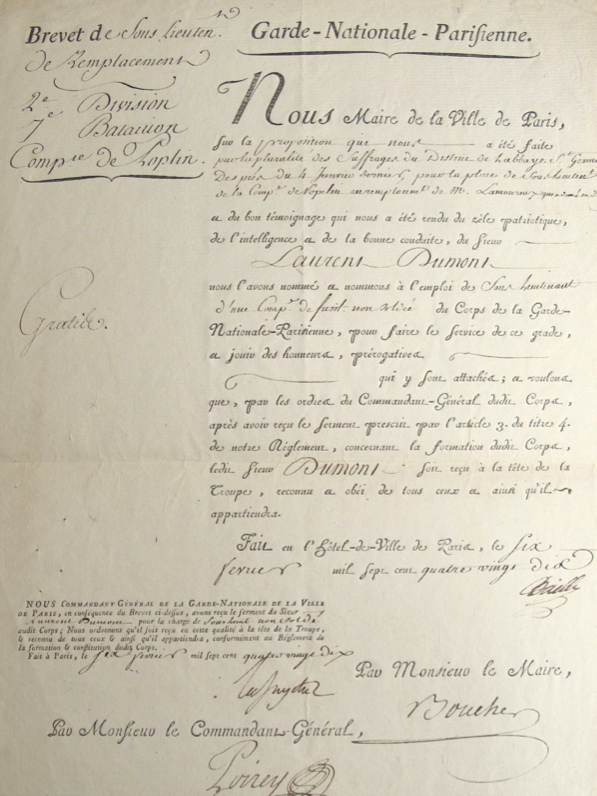 Brevet de Sous Lieuten.nt
de Remplacement
2e Division
7e Bataillon
Comp.ie de Poplin.
Gratiée.
Garde-Nationale-Parisienne.
Nous Maire de la Ville de Paris,
sur la proposition que nous a été faite
par la pluralité des Suffrages du District de Labbaye St. Germ
Des prés du 4 Janvier dernier, pour la place de Sous Lieuten.t
de la Comp.e de Popelin en remplacem.t de M.
& du bon témoignage qui nous a été rendu du zèle patriotique,
de l'intelligence & de la bonne conduite, du Sieur
Laurent Dumont
nous l'avons nommé & nommons à l'emploi de Sous Lieutenant
d'une Comp.e de fusil. non soldée du Corps de la Garde-
Nationale-Parisienne, pour faire le service de ce grade,
& jouir des honneurs, prérogatives
qui y sont attachés; & voulons
que, par les ordres du Commandant-Général dudit Corps,
après avoir reçu le serment prescrit par l'article 3. du titre 4.
de notre Réglement, concernant la formation dudit Corps,
ledit Sieur Dumont soit reçu à la tête de la
Troupe, reconnu & obéi de tous ceux & ainsi qu'il
appartiendra.
Fait en l'Hôtel-de-Ville de Paris, le Six
fevrier mil sept cent quatre vingt dix
Bailly
NOUS COMMANDANT GÉNÉRAL DE LA GARDE-NATIONALE DE LA VILLE
DE PARIS, en conséquence du Brevet ci-dessus, avons reçu le serment du Sieur
Laurent Dumont pour la charge de Sous Lieut. non soldé
audit Corps; Nous ordonnons qu'il soit reçu en cette qualité à la tête de la Troupe,
& reconnu de tous ceux & ainsi qu'il appartiendra, conformément au Réglement de
la formation & constitution dudit Corps.
Fait à Paris, le Six fevrier mil sept cent quatre vingt dix
Lafayette
Par Monsieur le Maire,
Boucher
Par Monsieur le Commandant-Général,
Poirey